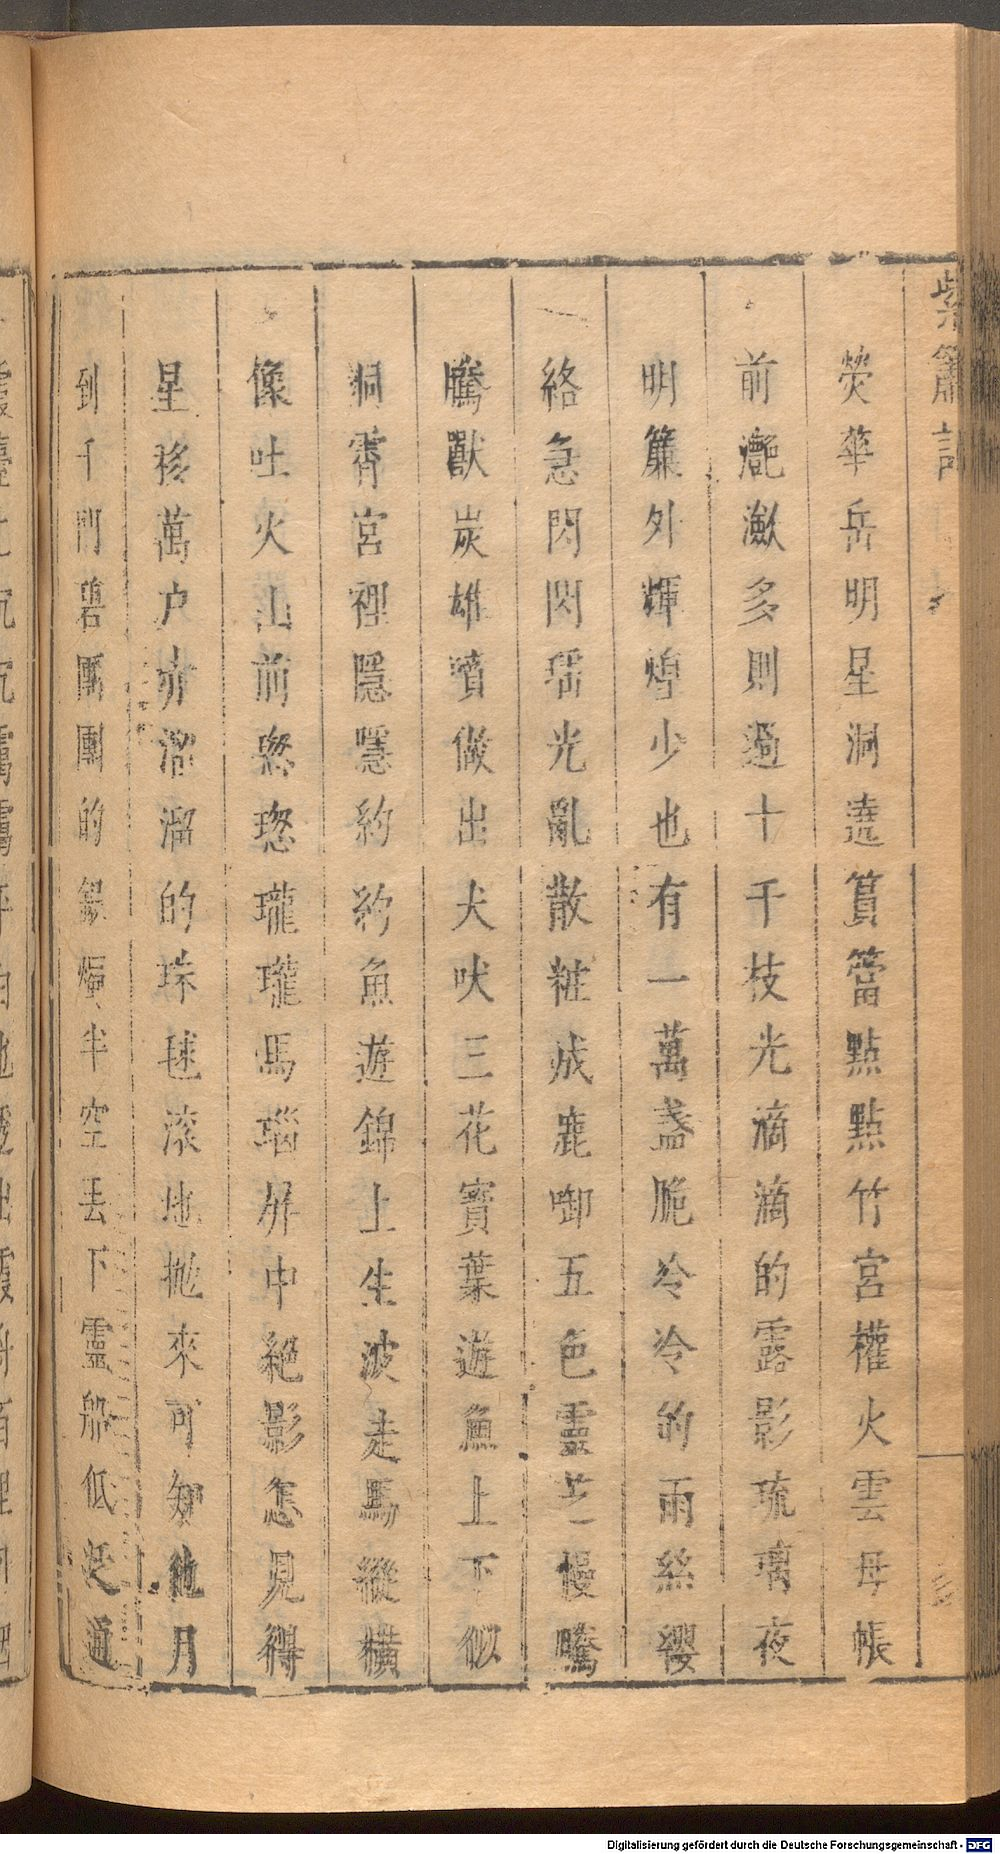 紫簫記
熒華岳明星洞遶篔簹點點竹宮權火雲母帳
前灔瀲多則過十千枝光滴滴的露影琉璃夜
明簾外輝煌少也有一萬盞脆冷冷的雨絲纓
絡急閃閃瑶光亂散粧成鹿啣五色靈芝慢騰
騰獸炭雄噴做出犬吠三花寶葉遊魚上下似
洞霄宮裡隱隱約約魚遊錦上生波走馬縱橫
像吐火山前璁璁瓏瓏馬瑙屏中絕影怎見得
星移萬户赤溜溜的珠毬滾地拋來可知他月
到千門碧團團的銀燭半空丟下靈船低泛通
Digitalisierung gefördert durch die Deutsche Forschungsgemeinschaft - DFG